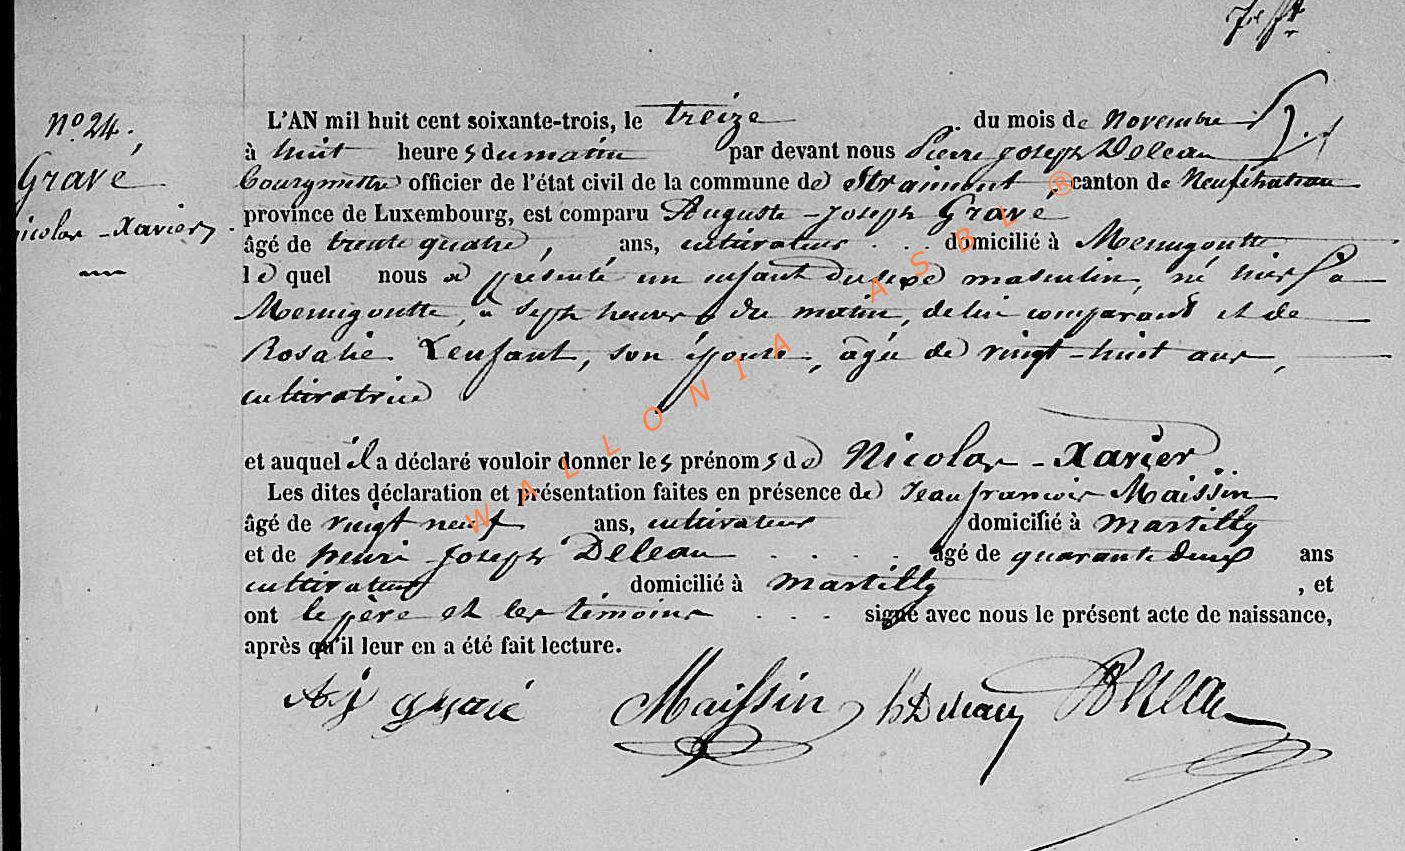 N° 24.
Gravé
Nicolas-Xavier.
L'AN mil huit cent soixante-trois, le treize du mois de Novembre
à huit heures du matin par devant nous Pierre Joseph Deleau
bourgmestre officier de l'état civil de la commune de Straimont, canton de Neufchateau
province de Luxembourg, est comparu Auguste-Joseph Gravé
âgé de trente quatre, ans, cultivateur domicilié à Menugoutte
lequel nous a présenté un enfant du sexe masculin, né hier à
Menugoutte, à sept heures du matin, de lui comparant et de
Rosalie Lenfant, son épouse, âgée de vingt-huit ans,
cultivatrice
et auquel il a déclaré vouloir donner les prénoms de Nicolas-Xavier.
Les dites déclaration et présentation faites en présence de Jean françois Maissin
âgé de vingt neuf ans, cultivateur domicilié à Martilly
et de henri Joseph Deleau âgé de quarante deux ans
cultivateur domicilié à Martilly, et
ont le père et les témoins signé avec nous le présent acte de naissance,
après qu'il leur en a été fait lecture.
A j gravé Maissin h Deleau Deleau
WALLONIA ASBL ®